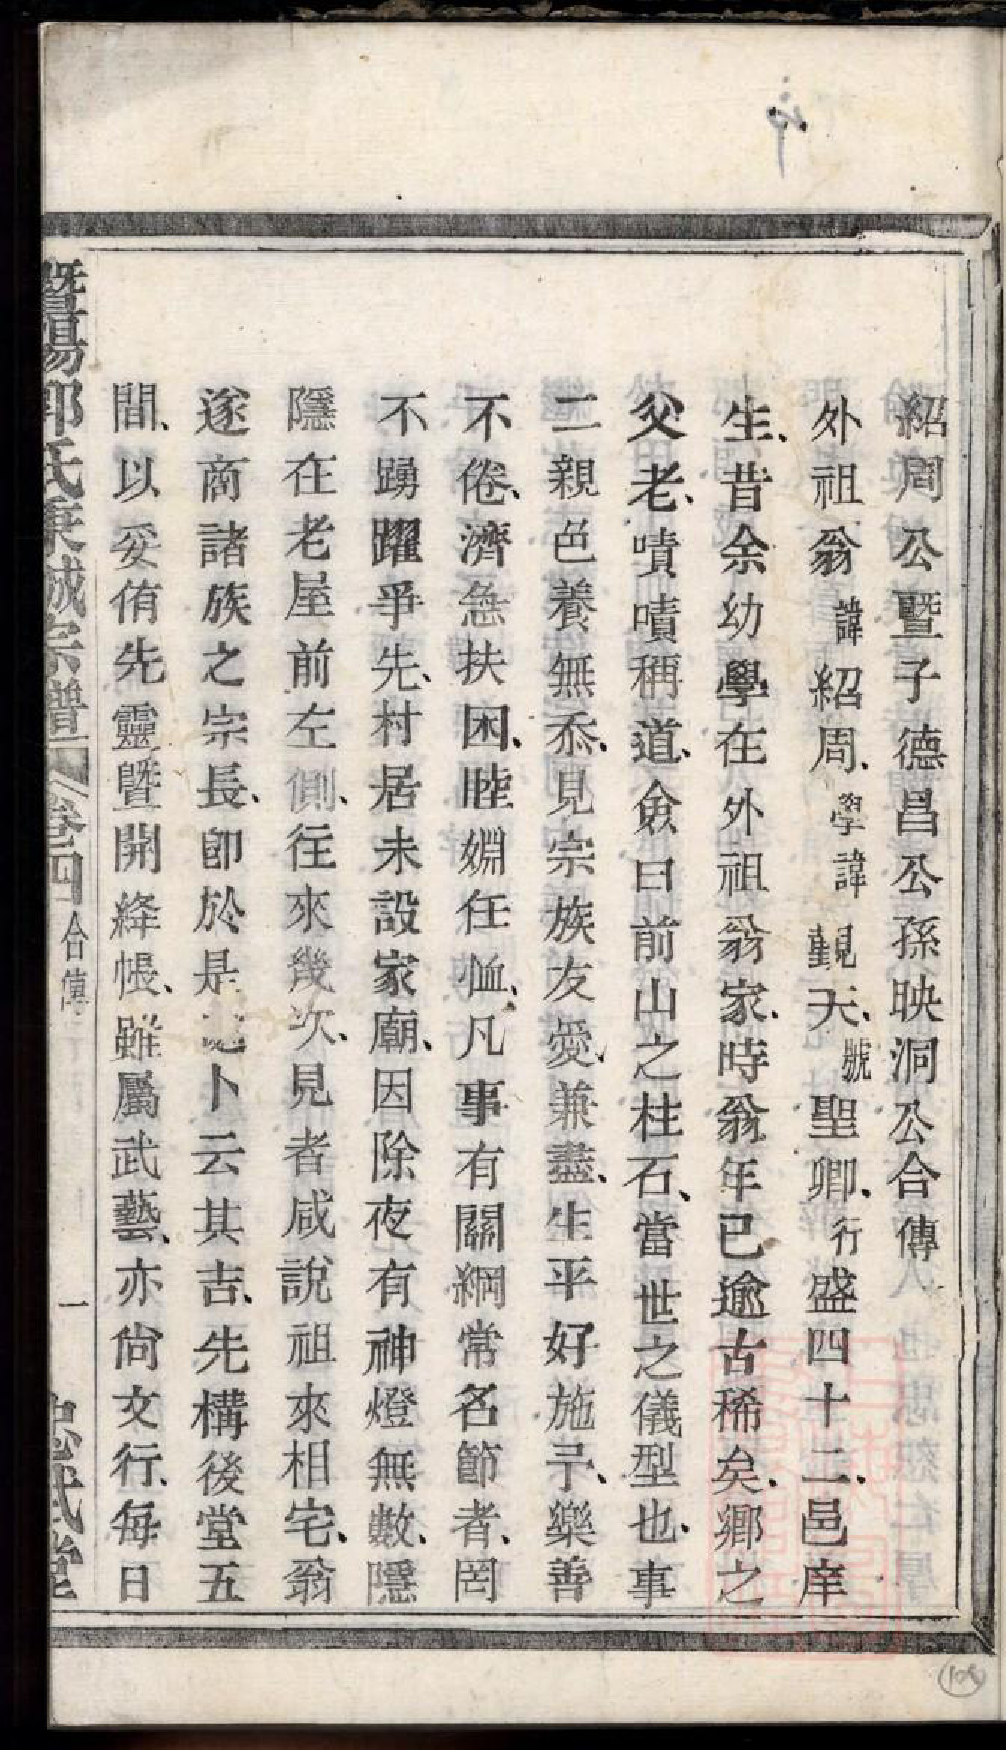 紹周公暨子德昌公孫映洞公合傳
外祖翁諱紹周、學諱觀天、號聖卿、行盛四十二、邑庠
生、昔余幼學在外祖翁家、時翁年已逾古稀矣、鄉之
父老、嘖嘖稱道、僉曰前山之柱石、當世之儀型也、事
二親色養無忝、見宗族友愛兼盡、生平好施予、樂善
不倦、濟急扶困、睦婣任恤、凡事有關綱常名節者、罔
不踴躍爭先、村居未設家廟、因除夜有神燈無數、隱
隱在老屋前左側、往來幾次、見者咸說祖來相宅、翁
遂商諸族之宗長、卽於是 卜云其吉、先構後堂五
間、以妥侑先靈、曁開絳帳、雖屬武藝、亦尙文行、每日
暨陽郭氏 誠宗譜 卷四 合傳 一 忠武堂